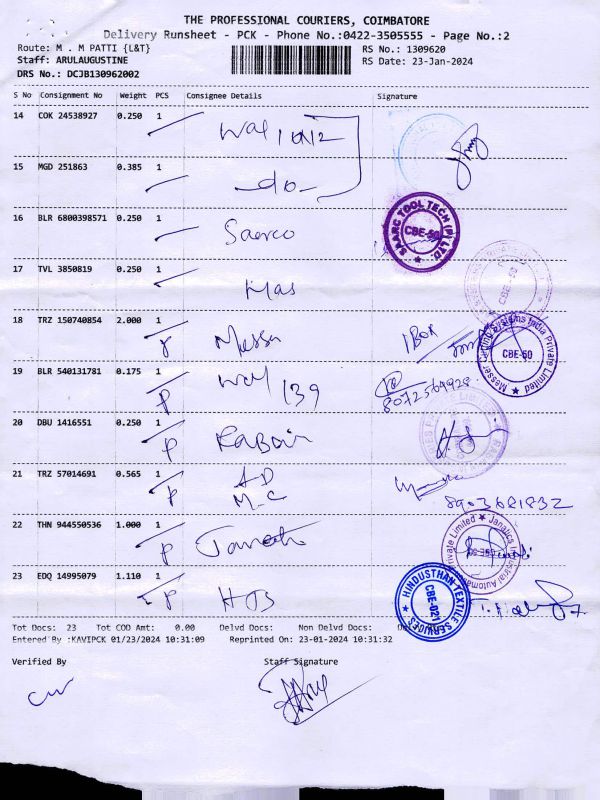 THE PROFESSIONAL COURIERS, COIMBATORE
Delivery Runsheet - PCK - Phone No.:0422-3505555 - Page No.:2
Route: M . M PATTI {L&T} RS No.: 1309620
Staff: ARULAUGUSTINE RS Date: 23-Jan-2024
DRS No.: DCJB130962002
S No Consignment No Weight PCS Consignee Details Signature
14 COK 24538927 0.250 1
15 MGD 251863 0.385 1 -do-
16 BLR 6800398571 0.250 1 SAARC TOOL TECH (P) LTD. CBE-50
17 TVL 3850819 0.250 1 Mas
18 TRZ 150740854 2.000 1 Messer 1 Box Messer Cutting Systems India Private Limited CBE-50
19 BLR 540131781 0.175 1 139 8072564928
20 DBU 1416551 0.250 1
21 TRZ 57014691 0.565 1 AD
M-C 8903681832
22 THN 944550536 1.000 1 Janatics Industrial Automation Private Limited
23 EDQ 14995079 1.110 1 HTS HINDUSTHAN TEXTILE SERVICES CBE-021
Tot Docs: 23 Tot COD Amt: 0.00 Delvd Docs: Non Delvd Docs:
Entered By :KAVIPCK 01/23/2024 10:31:09 Reprinted On: 23-01-2024 10:31:32
Verified By Staff Signature